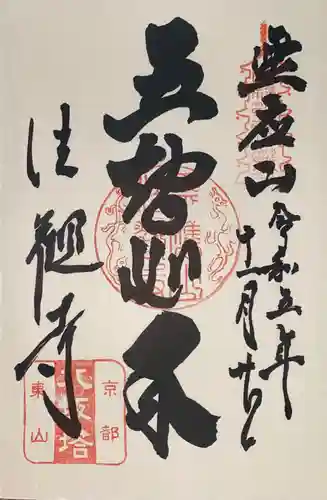 霊應山
令和五年
十一月廿
五智如来
法観寺
京都
八坂塔
東山